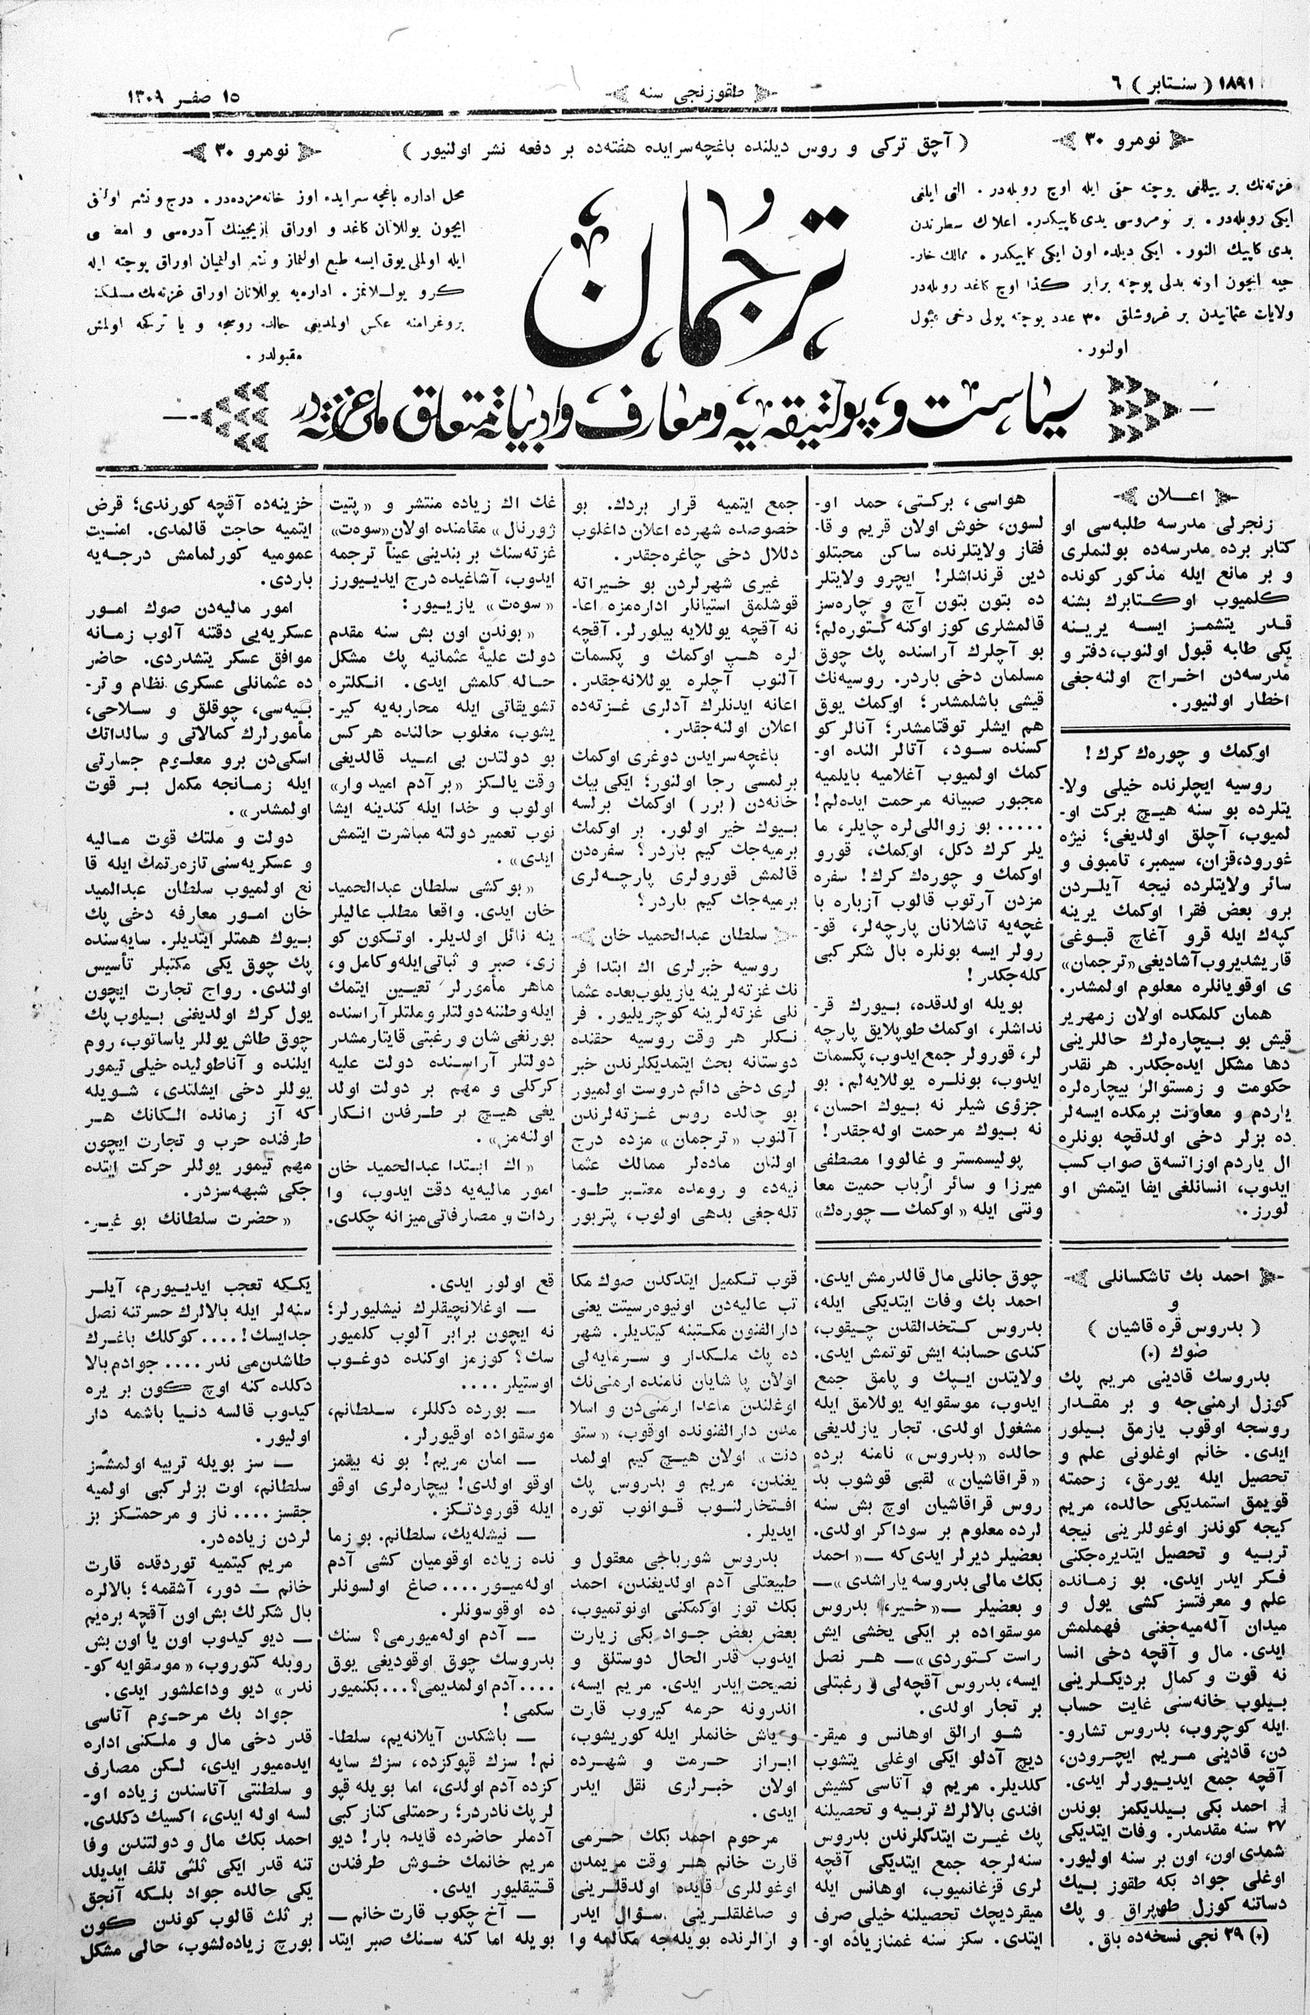 ١٨٩١ ( سنتابر ) ٦
طقوزنجی سنه
١٥ صفر ١٣٠٩
نومرو ٣٠
( آچق ترکی و روس دیلنده باغچه‌سرایده هفته‌ده بر دفعه نشر اولنیور )
نومرو ٣٠
غزته‌نك بر ییللغی پوچته حقی ایله اوچ روبله‌در . التی ایلغی
ایکی روبله‌در . بر نومروسی یدی کاپیکدر . اعلانك سطرندن
یدی کاپیك النور . ایکی دیلده اون ایکی کاپیکدر . ممالك خار-
جیه ایچون اونه بدلی پوچته برابر کذا اوچ کاغد روبله‌در
ولایات عثمانیدن بر غروشلق ٣٠ عدد پوچته پولی دخی قبول
اولنور .
ترجمان
محل اداره باغچه سرایده اوز خانه‌مزده‌در . درج و نشر اولنق
ایچون یوللانان کاغد و اوراق یازیجینك آدره‌سی و امضاسی
ایله اولملی یوق ایسه طبع اولنماز و نشر اولنمیان اوراق پوچته ایله
کرو یوللانمز . اداره‌یه یوللانان اوراق غزته‌نك مسلکنه
پروغرامنه عکس اولمدیغی حالده روسجه و یا ترکجه اولمش
مقبولدر .
سیاست و پولتیقه‌یه و معارف و ادبیاته متعلق ملی غزته‌در
اعلان
زنجرلی مدرسه طلبه‌سی او
کتابر برده مدرسه‌ده بولنملری
و بر مانع ایله مذکور کونده
کلمیوب اوکتابرك بشنه
قدر یتشمز ایسه یرینه
یکی طلبه قبول اولنوب، دفتر و
مدرسه‌دن اخراج اولنه‌جغی
اخطار اولنیور .
اوکمك و چوره‌ك کرك !
روسیه ایچلرنده خیلی ولا-
یتلرده بو سنه هیچ برکت او-
لمیوب، آچلق اولدیغی؛ نیژه
غورود، قزان، سیمبر، تامبوف و
سائر ولایتلرده نیجه آیلردن
برو بعض فقرا اوکمك یرینه
کپه‌ك ایله قرو آغاچ قبوغی
قاریشدیروب آشادیغی «ترجمان»
ی اوقویانلره معلوم اولمشدر .
همان کلمکده اولان زمهریر
قیش بو بیچاره‌لرك حاللرینی
دها مشکل ایده‌جکدر . هر نقدر
حکومت و زمستوالر بیچاره‌لره
یاردم و معاونت برمکده ایسه‌لر
ده بزلر دخی اولدقچه بونلره
ال یاردم اوزاتسه‌ق صواب کسب
ایدوب، انسانلغی ایفا ایتمش او
لورز .
هواسی، برکتی، حمد او-
لسون، خوش اولان قریم و قا-
فقاز ولایتلرنده ساکن محبتلو
دین قرنداشلر! ایچرو ولایتلر
ده بتون بتون آچ و چاره‌سز
قالمشلری کوز اوکنه کتوره‌لم؛
بو آچلرك آراسنده پك چوق
مسلمان دخی باردر . روسیه‌نك
قیشی باشلمشدر؛ اوکمك یوق
هم ایشلر توقتامشدر؛ آنالر کو
کسنده سود، آتالر النده او-
کمك اولمیوب آغلامیه بایلمیه
مجبور صبیانه مرحمت ایده‌لم!
..... بو زواللی‌لره چایلر، ما
یلر کرك دکل، اوکمك، قورو
اوکمك و چوره‌ك کرك! سفره
مزدن آرتوب قالوب آزباره با
غچه‌یه تاشلانان پارچه‌لر، قو-
رولر ایسه بونلره بال شکر کبی
کله‌جکدر!
بویله اولدقده، بیورك قر-
نداشلر، اوکمك طوپلایق پارچه
لر، قورولر جمع ایدوب، پکسمات
ایدوب، بونلره یوللایه‌لم : بو
جزؤی شیلر نه بیوك احسان،
نه بیوك مرحمت اوله‌جقدر!
پولیسمستر و غالووا مصطفی
میرزا و سائر ارباب حمیت معا
ونتی ایله «اوکمك — چوره‌ك»
جمع ایتمیه قرار بردك . بو
خصوصده شهرده اعلان داغلوب
دللال دخی چاغره‌جقدر .
غیری شهرلردن بو خیراته
قوشلمق استیانلر اداره‌مزه اعا-
نه آقچه یوللایه بیلورلر . آقچه
لره هپ اوکمك و پکسمات
آلنوب آچلره یوللانه‌جقدر .
اعانه ایدنلرك آدلری غزته‌ده
اعلان اولنه‌جقدر .
باغچه‌سرایدن دوغری اوکمك
برلمسی رجا اولنور؛ ایکی بیك
خانه‌دن (برر) اوکمك برلسه
بیوك خیر اولور . بر اوکمك
برمیه‌جك کیم باردر؟ سفره‌دن
قالمش قورولری پارچه‌لری
برمیه‌جك کیم باردر؟
سلطان عبدالحمید خان
روسیه خبرلری اك ابتدا فر
نك غزته‌لرینه یازیلوب بعده عثما
نلی غزته‌لرینه کوچریلیور . فر
نکلر هر وقت روسیه حقنده
دوستانه بحث ایتمدیکلرندن خبر
لری دخی دائم دروست اولمیور
بو حالده روس غزته‌لرندن
آلنوب «ترجمان» مزده درج
اولنان ماده‌لر ممالك عثما
نیه‌ده و روماده معتبر طو-
تله‌جغی بدهی اولوب، پتربور
غك اك زیاده منتشر و «پتیت
ژورنال» مقامنده اولان «سوه‌ت»
غزته‌سنك بر بندینی عیناً ترجمه
ایدوب، آشاغیده درج ایدییورز
«سوه‌ت» یازییور :
«بوندن اون بش سنه مقدم
دولت علیۀ عثمانیه پك مشکل
حاله کلمش ایدی . انکلتره
تشویقاتی ایله محاربه‌یه کیر-
یشوب، مغلوب حالنده هر کس
بو دولتدن بی امید قالدیغی
وقت یالکز «بر آدم امید وار»
اولوب و خدا ایله کندینه ایشا
نوب تعمیر دولته مباشرت ایتمش
ایدی» .
«بو کشی سلطان عبدالحمید
خان ایدی . واقعا مطلب عالیلر
ینه نائل اولدیلر . اوتکون کو
زی، صبر و ثباتی ایله و کامل و،
ماهر مأمورلر تعیین ایتمك
ایله وطننه دولتلر و ملتلر آراسنده
بورنغی شان و رغبتی قایتارمشدر
دولتلر آراسنده دولت علیه
کرکلی و مهم بر دولت اولد
یغی هیچ بر طرفدن انکار
اولنه‌مز» .
«اك ابتدا عبدالحمید خان
امور مالیه‌یه دقت ایدوب، وا
ردات و مصارفاتی میزانه چکدی .
خزینه‌ده آقچه کورندی؛ قرض
ایتمیه حاجت قالمدی . امنیت
عمومیه کورلمامش درجه‌یه
باردی .
امور مالیه‌دن صوك امور
عسکریه‌یی دقتنه آلوب زمانه
موافق عسکر یتشدردی . حاضر
ده عثمانلی عسکری نظام و تر-
بیه‌سی، چوقلق و سلاحی،
مأمورلرك کمالاتی و سالداتك
اسکی‌دن برو معلوم جسارتی
ایله زمانجه مکمل بر قوت
اولمشدر» .
دولت و ملتك قوت مالیه
و عسکریه‌سنی تازه‌رتمك ایله قا
نع اولمیوب سلطان عبدالمید
خان امور معارفه دخی پك
بیوك همتلر ایتدیلر . سایه‌سنده
پك چوق یکی مکتبلر تأسیس
اولندی . رواج تجارت ایچون
یول کرك اولدیغنی بیلوب پك
چوق طاش یوللر یاساتوب، روم
ایلنده و آناطولیده خیلی تیمور
یوللر دخی ایشلندی، شویله
که آز زمانده الکانك هر
طرفنده حرب و تجارت ایچون
مهم تیمور یوللر حرکت ایتده
جکی شبهه‌سزدر .
« حضرت سلطانك بو غیر-
احمد بك تاشکسانلی
و
( بدروس قره قاشیان )
صوك (٠)
بدروسك قادینی مریم پك
کوزل ارمنی‌جه و بر مقدار
روسجه اوقوب یازمق بیلور
ایدی . خانم اوغلونی علم و
تحصیل ایله یورمق، زحمته
قویمق استمدیکی حالده، مریم
کیجه کوندز اوغوللرینی نیجه
تربیه و تحصیل ایتدیره‌جکنی
فکر ایدر ایدی . بو زمانده
علم و معرفتسز کشی یول و
میدان آله‌میه‌جغنی فهملمش
ایدی . مال و آقچه دخی انسا
نه قوت و کمال بردیکلرینی
بیلوب خانه‌سنی غایت حساب
ایله کوچروب، بدروس تشارو-
دن، قادینی مریم ایچرودن،
آقچه جمع ایدییورلر ایدی .
احمد بکی بیلدیکمز بوندن
٢٧ سنه مقدمدر . وفات ایتدیکی
شمدی اون، اون بر سنه اولیور .
اوغلی جواد بکه طقوز بیك
دساتنه کوزل طوپراق و پك
(٠) ٢٩ نجی نسخه‌ده باق .
چوق جانلی مال قالدرمش ایدی .
احمد بك وفات ایتدیکی ایله،
بدروس کتخدالقدن چیقوب،
کندی حسابنه ایش توتمش ایدی .
ولایتدن ایپك و پامق جمع
ایدوب، موسقوایه یوللامق ایله
مشغول اولدی . تجار یازلدیغی
حالده «بدروس» نامنه برده
«قراقاشیان» لقبی قوشوب بد
روس قراقاشیان اوچ بش سنه
لرده معلوم بر سوداکر اولدی .
بعضیلر دیرلر ایدی که — «احمد
بکك مالی بدروسه یاراشدی» —
و بعضیلر — «خیر، بدروس
موسقواده بر ایکی یخشی ایش
راست کتوردی» — هر نصل
ایسه، بدروس آقچه‌لی و رغبتلی
بر تجار اولدی .
شو ارالق اوهانس و میقر-
دیچ آدلو ایکی اوغلی یتشوب
کلدیلر . مریم و آتاسی کشیش
افندی بالالرك تربیه و تحصیلنه
پك غیرت ایتدکلرندن بدروس
سنه‌لرجه جمع ایتدیکی آقچه
لری قزغانمیوب، اوهانس ایله
میقردیچك تحصیلنه خیلی صرف
ایتدی . سکز سنه غمنازیاده او-
قوب تکمیل ایتدکدن صوك مکا
تب عالیه‌دن اونیوه‌رسیتت یعنی
دارالفنون مکتبنه کیتدیلر . شهر
ده پك ملکدار و سرمایه‌لی
اولان پاشایان نامنده ارمنی‌نك
اوغلندن ماعدا ارمنی‌دن و اسلا
مدن دارالفنونده اوقوب، «ستو
دنت» اولان هیچ کیم اولمد
یغندن، مریم و بدروس پك
افتخارلنوب قوانوب توره
ایدیلر .
بدروس شورباجی معقول و
طبیعتلی آدم اولدیغندن، احمد
بکك توز اوکمکنی اونوتمیوب،
بعض بعض جواد بکی زیارت
ایدوب قدر الحال دوستلق و
نصیحت ایدر ایدی . مریم ایسه،
اندرونه حرمه کیروب قارت
و یاش خانملر ایله کوریشوب،
ابراز حرمت و شهرده
اولان خبرلری نقل ایدر
ایدی .
مرحوم احمد بکك حرمی
قارت خانم هر وقت مریمدن
اوغوللری قایده اولدقلرینی
و صاغلقلرینی سؤال ایدر
و ارالرنده بویله‌جه مکالمه وا
قع اولور ایدی .
— اوغلانچیقلرك نیشلیورلر؛
نه ایچون برابر آلوب کلمیور
سك؟ کوزمز اوکنده دوغوب
اوستیلر ....
— بورده دکللر، سلطانم،
موسقواده اوقیورلر .
— امان مریم! بو نه بیقمز
اوقو اولدی! بیچاره‌لری اوقو
ایله قورودتکز .
— نیشله‌یك، سلطانم . بو زما
نده زیاده اوقومیان کشی آدم
اوله‌میور .... صاغ اولسونلر
ده اوقوسونلر .
— آدم اوله‌میورمی؟ سنك
بدروسك چوق اوقودیغی یوق
.... آدم اولمدیمی؟... بکنمیور
سکمی!
— باشکدن آیلانه‌یم، سلطا-
نم! سزك قپوکزده، سزك سایه
کزده آدم اولدی، اما بویله قپو
لر پك نادردر؛ رحمتلی کناز کبی
آدملر حاضرده قایده بار! دیو
مریم خانمك خوش طرفندن
قتیقلیور ایدی .
— آخ چکوب قارت خانم —
بویله اما کنه سنك صبر ایتد
یککه تعجب ایدییورم، آیلر
سنه‌لر ایله بالالرك حسرتنه نصل
جدایسك!.... کوکلك باغرك
طاشدن‌می ندر .... جوادم بالا
دکلده کنه اوچ کون بر یره
کیدوب قالسه دنیا باشمه دار
اولیور .
— سز بویله تربیه اولمشسز
سلطانم، اوت بزلر کبی اولمیه
جقسز .... ناز و مرحمتکز بز
لردن زیاده‌در .
مریم کیتمیه توردقده قارت
خانم — دور، آشقمه؛ بالالره
بال شکرلك بش اون آقچه بره‌یم
— دیو کیدوب اون یا اون بش
روبله کتوروب، «موسقوایه کو-
ندر» دیو وداعلشور ایدی .
جواد بك مرحوم آتاسی
قدر دخی مال و ملکنی اداره
ایده‌میور ایدی، لکن مصارف
و سلطنتی آتاسندن زیاده او-
لسه اوله ایدی، اکسیك دکلدی .
احمد بکك مال و دولتندن وفا
تنه قدر ایکی ثلثی تلف ایدیلد
یکی حالده جواد بلکه آنجق
بر ثلث قالوب کوندن کون
بورچ زیاده‌لشوب، حالی مشکل